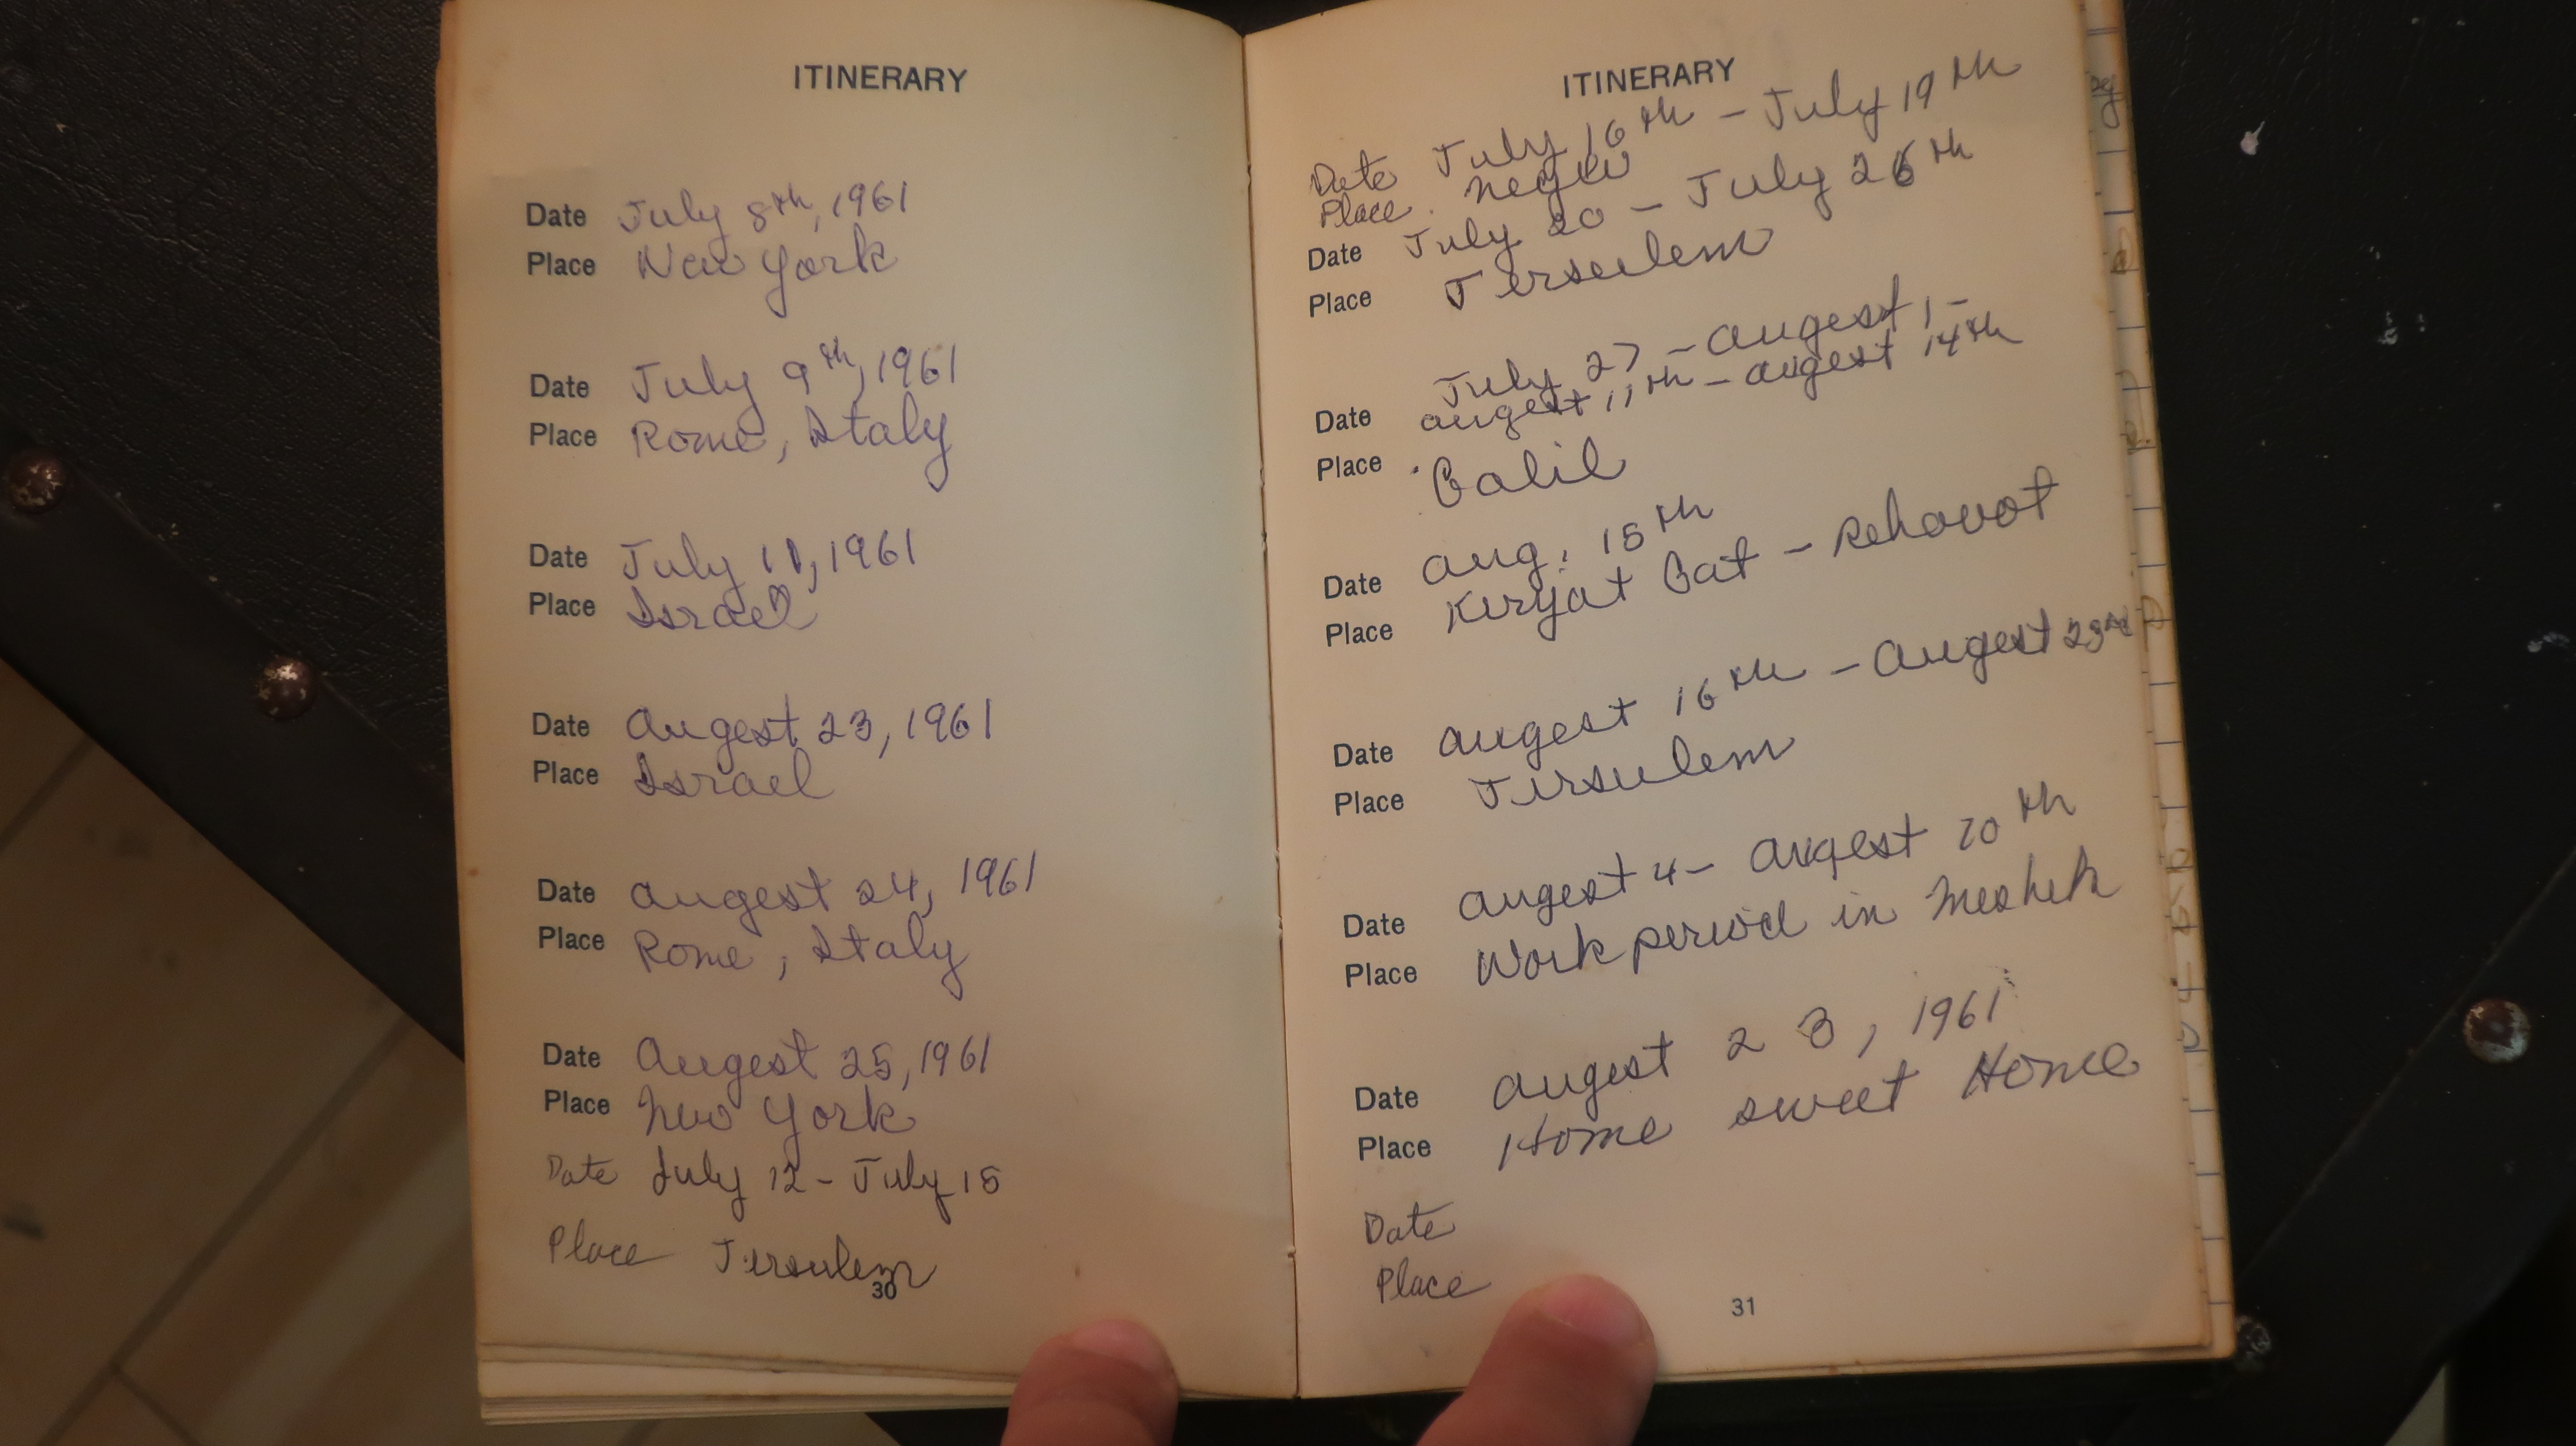 ITINERARY
Date July 8th, 1961
Place New York
Date July 9th, 1961
Place Rome, Italy
Date July 11, 1961
Place Israel
Date Augest 23, 1961
Place Israel
Date Augest 24, 1961
Place Rome, Italy
Date Augest 25, 1961
Place New York
Date July 12 - July 15
Place Jersulem
30
ITINERARY
Date July 16th - July 19th
Place Negev
Date July 20 - July 26th
Place Jersulem
July 27 - Augest 1 -
Date Augest 11th - Augest 14th
Place Galil
Date Aug. 15th
Place Kiryat Gat - Rehovot
Date Augest 16th - Augest 23rd
Place Jersulem
Date Augest 4 - Augest 10th
Place Work period in Meshek
Date Augest 23, 1961
Place Home sweet Home
Date
Place
31